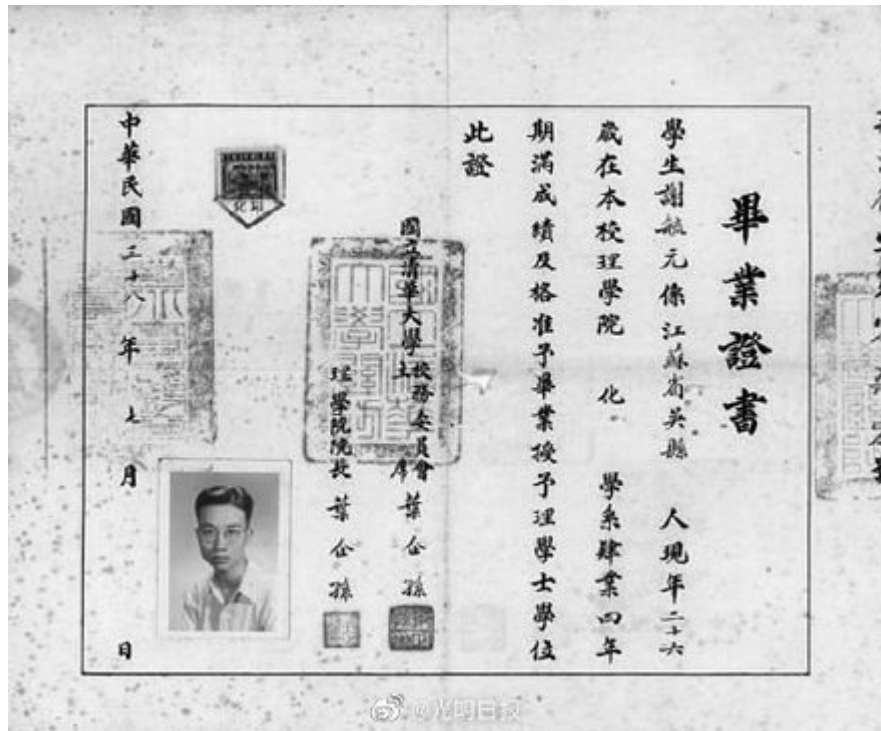 畢業證書
學生謝毓元係江蘇省吳縣 人現年二十六
歲在本校理學院 化 學系肄業四年
期滿成績及格准予畢業授予理學士學位
此證
國立清華大學校務委員會主席 葉企孫
理學院院長 葉企孫
中華民國三十八年 七 月 日
@光明日报